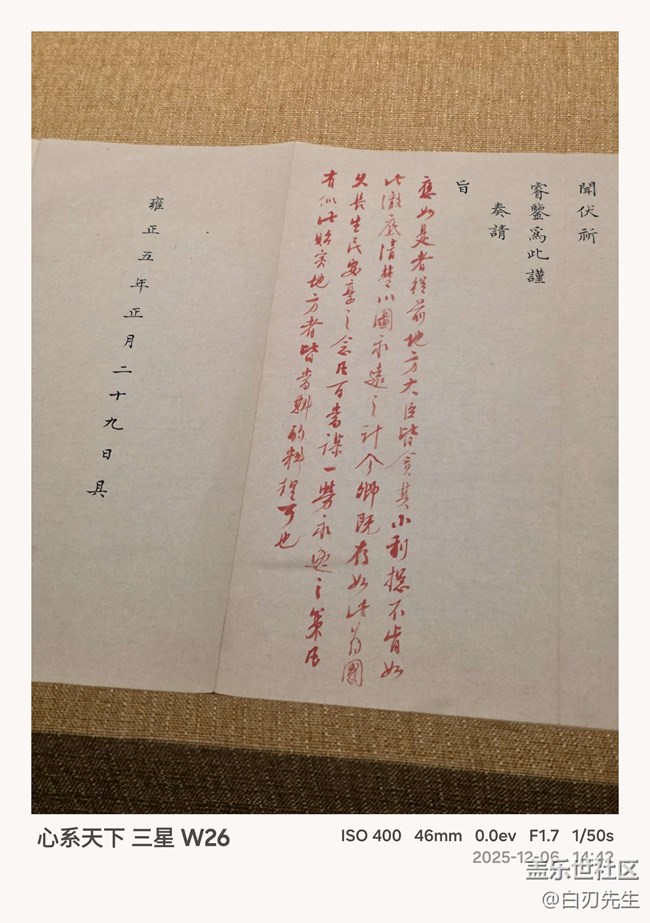 聞伏祈
睿鑒爲此謹
奏請
旨
應如是者從前地方大臣皆貪其小利總不肯如
此澈底清楚以圖永遠之計今卿既存如此爲國
久長生民安享之念凡百當謀一勞永逸之策凡
有似此貽害地方者皆當斟酌料理可也
雍正五年正月二十九日具
心系天下 三星 W26
ISO 400 46mm 0.0ev F1.7 1/50s
2025-12-06 14:42
盖乐世社区
@白刃先生